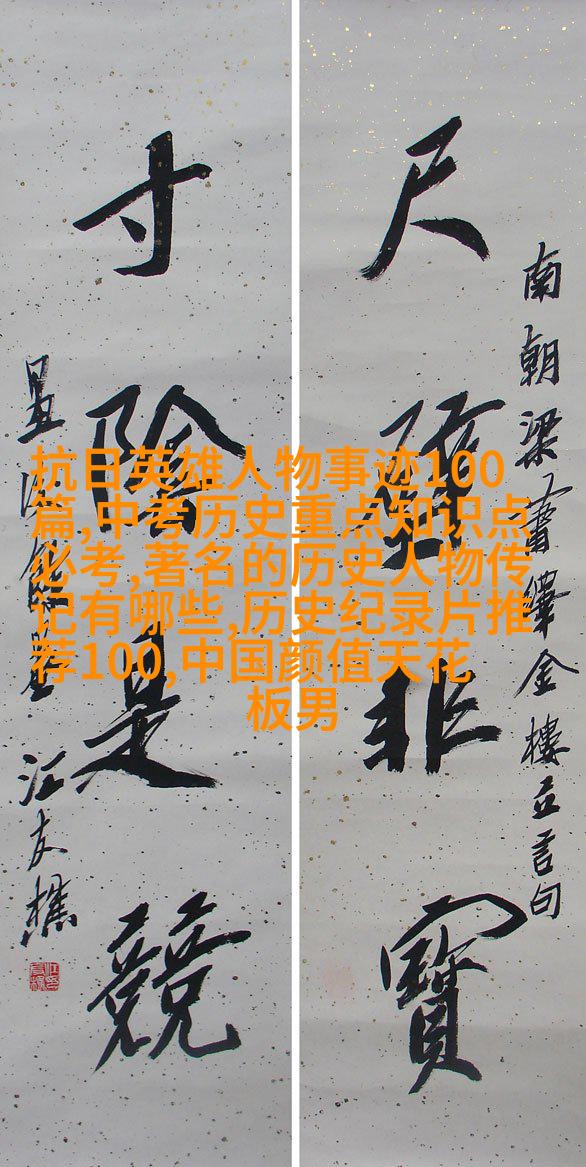 南朝梁蕭繹金樓立言句
尺璧非寶
寸陰是競
汪友樵
抗日英雄人物事迹100
篇,中考历史重点知识点
必考,著名的历史人物传
记有哪些,历史纪录片推
荐100,中国颜值天花
板男